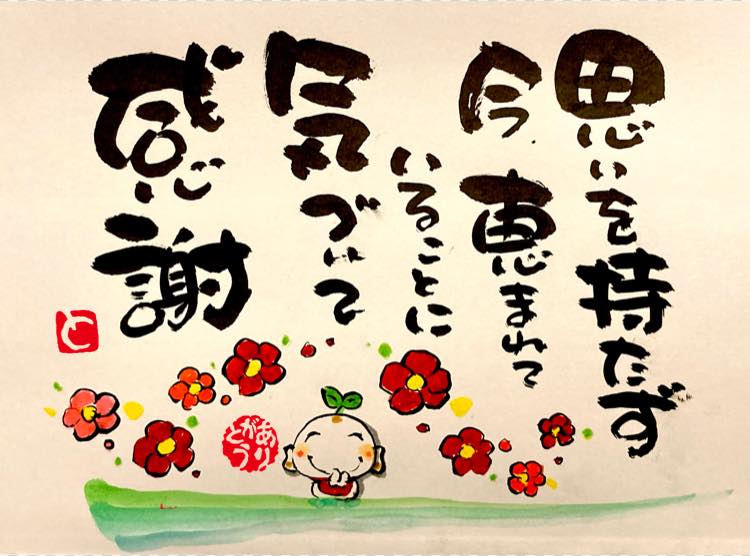 思いを持たず
今、恵まれて
いることに
気づいて
感謝
と
ありがとう